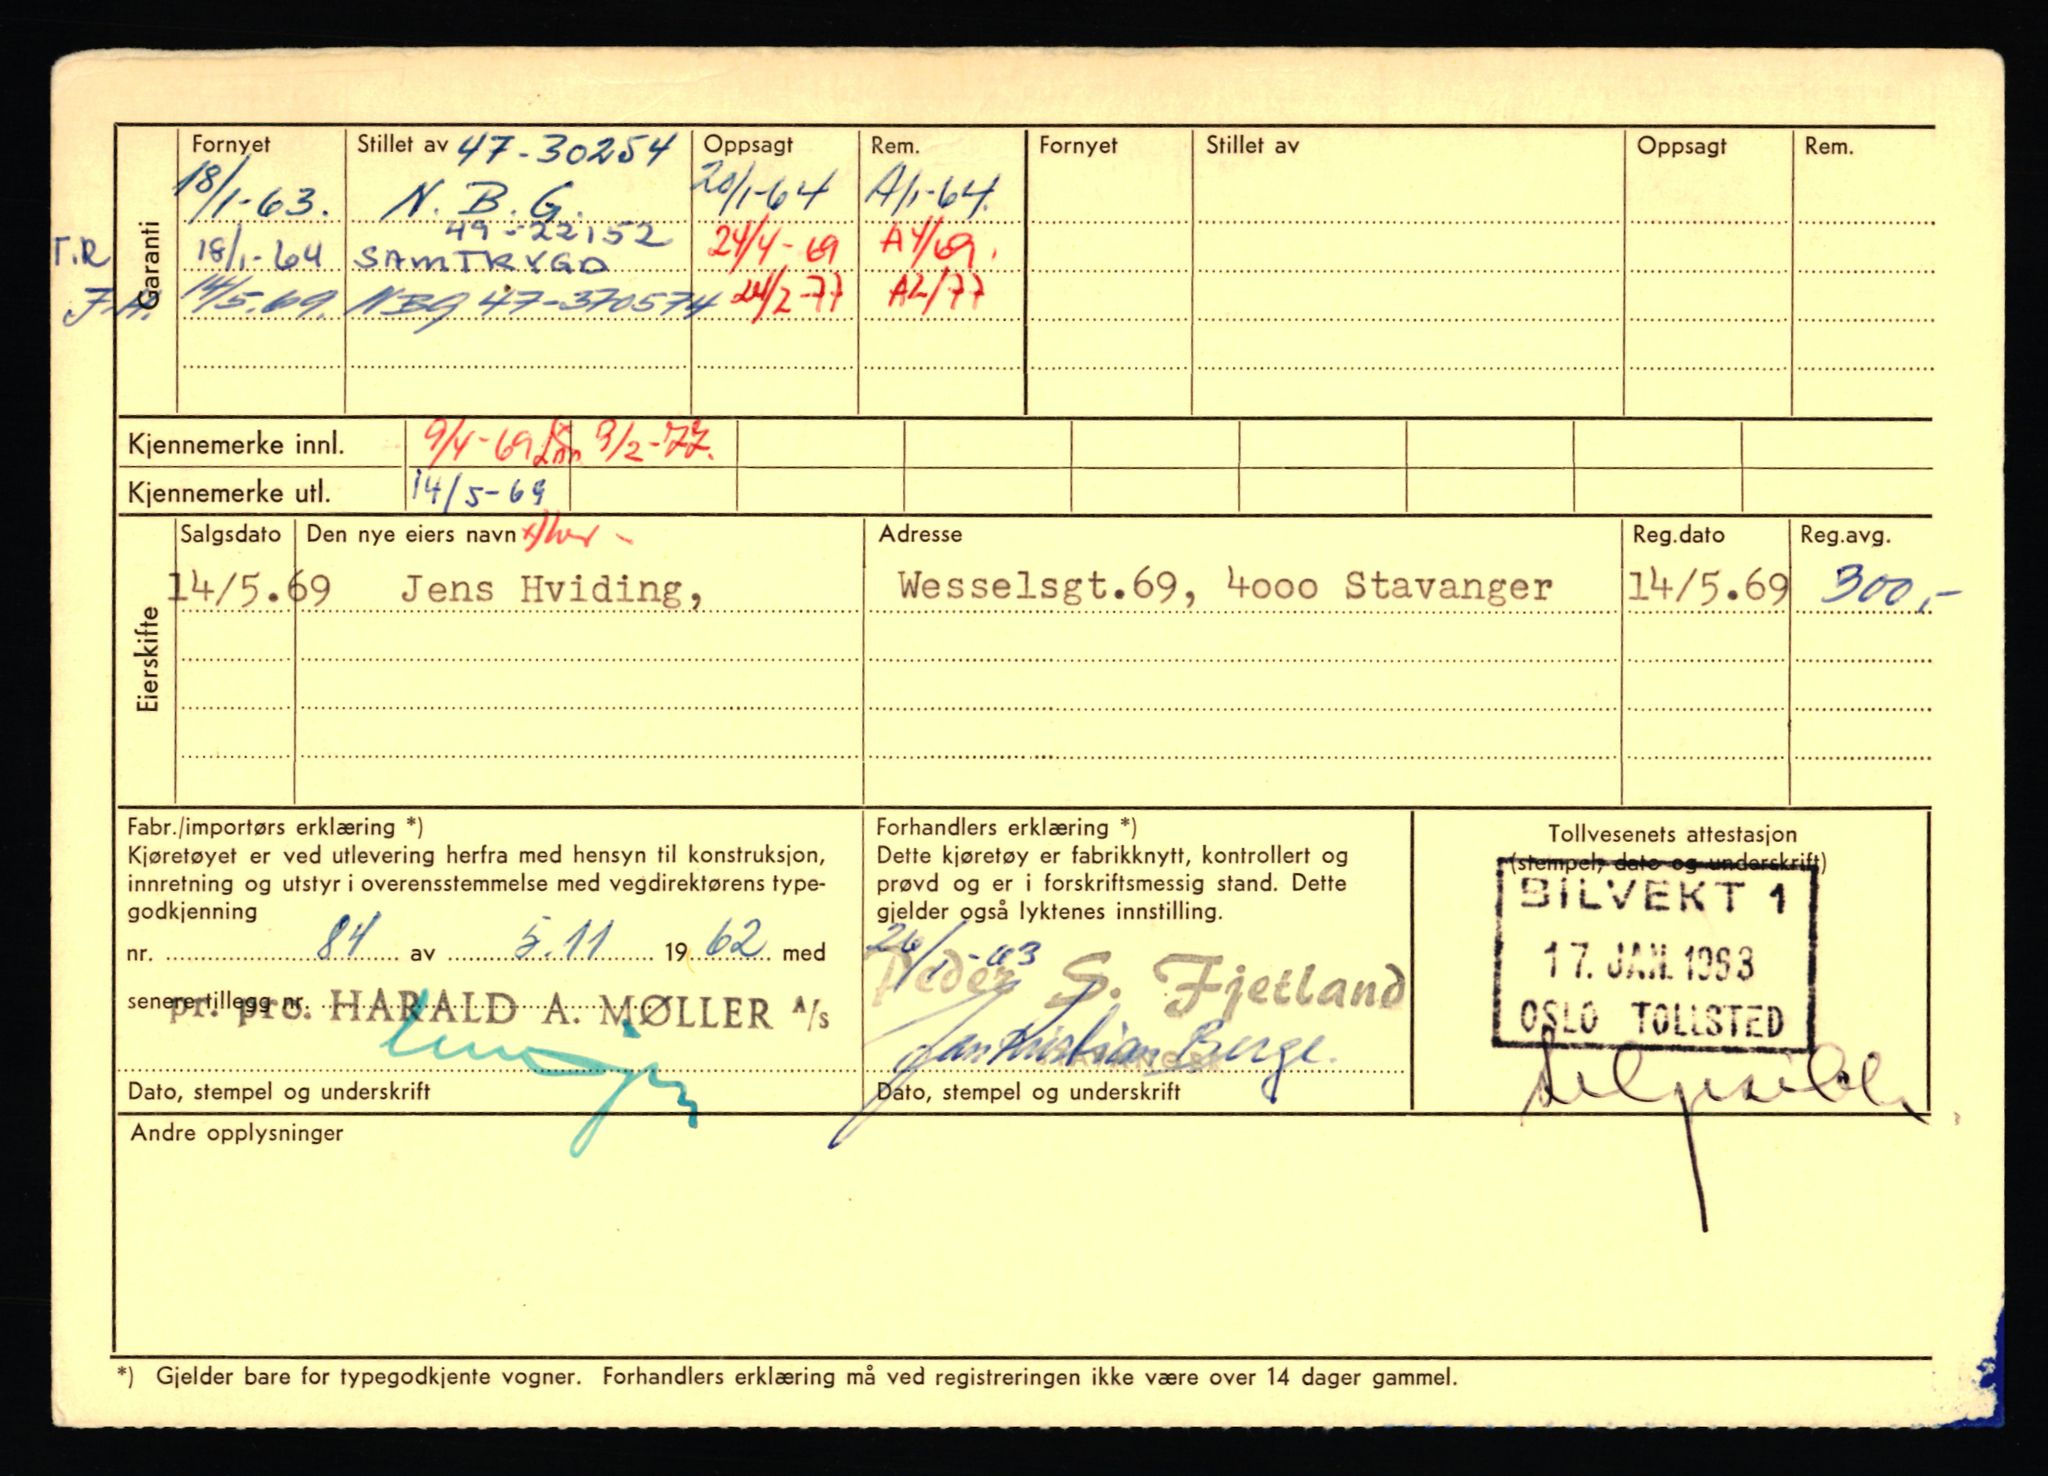 Garanti
Fornyet Stillet av 47-30254 Oppsagt Rem. Fornyet Stillet av Oppsagt Rem.
18/1-63. N. B. G. 20/1-64 A/1-64.
49-22152
T.R 18/1-64 SAMTRYGD 24/4-69 A4/69.
J.A. 14/5.69. NBG 47-370574 24/2-77 A2/77
Kjennemerke innl. 9/4-69 3/2-77.
Kjennemerke utl. 14/5-69
Eierskifte
Salgsdato Den nye eiers navn Adresse Reg.dato Reg.avg.
14/5.69 Jens Hviding, Wesselsgt.69, 4000 Stavanger 14/5.69 300,-
Fabr./importørs erklæring *)
Kjøretøyet er ved utlevering herfra med hensyn til konstruksjon,
innretning og utstyr i overensstemmelse med vegdirektørens type-
godkjenning
nr. 84 av 5.11 1962 med
senere tillegg nr.
pr. pro. HARALD A. MØLLER A/S
Dato, stempel og underskrift
Forhandlers erklæring *)
Dette kjøretøy er fabrikknytt, kontrollert og
prøvd og er i forskriftsmessig stand. Dette
gjelder også lyktenes innstilling.
26/1-63
Peder S. Fjetland
Jan Kristian Berge.
Dato, stempel og underskrift
Tollvesenets attestasjon
(stempel, dato og underskrift)
BILVEKT 1
17. JAN. 1963
OSLO TOLLSTED
Andre opplysninger
*) Gjelder bare for typegodkjente vogner. Forhandlers erklæring må ved registreringen ikke være over 14 dager gammel.